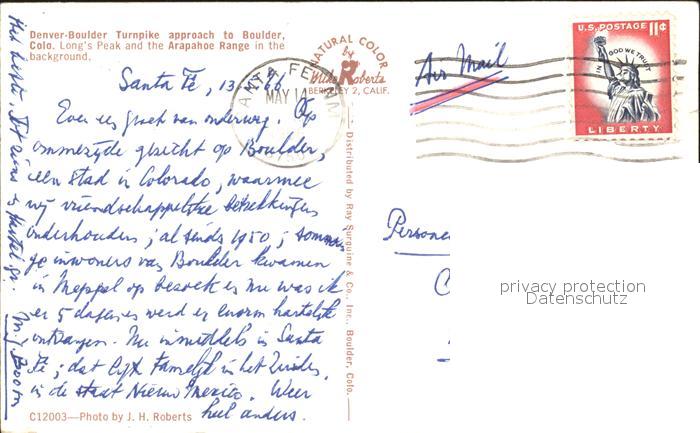 Denver-Boulder Turnpike approach to Boulder,
Colo. Long's Peak and the Arapahoe Range in the
background.
NATURAL COLOR
by
Mike Roberts
BERKELEY 2, CALIF.
Santa Fé, 13
Even een groet van onderweg. Op
ommezijde gezicht op Boulder,
een stad in Colorado, waarmee
wij vriendschappelijke betrekkingen
onderhouden; al sinds 1950; sommi
ge inwoners van Boulder kwamen
in Meppel op bezoek en nu was ik
er 5 dagen en werd er enorm hartelijk
ontvangen. Nu inmiddels in Santa
Fé; dat ligt tamelijk in het Zuiden,
in de staat Nieuw Mexico. Weer
heel anders.
C12003—Photo by J. H. Roberts
Distributed by Ray Surguine & Co., Inc., Boulder, Colo.
MAY 14
Air Mail
U.S. POSTAGE 11¢
IN GOD WE TRUST
LIBERTY
privacy protection
Datenschutz